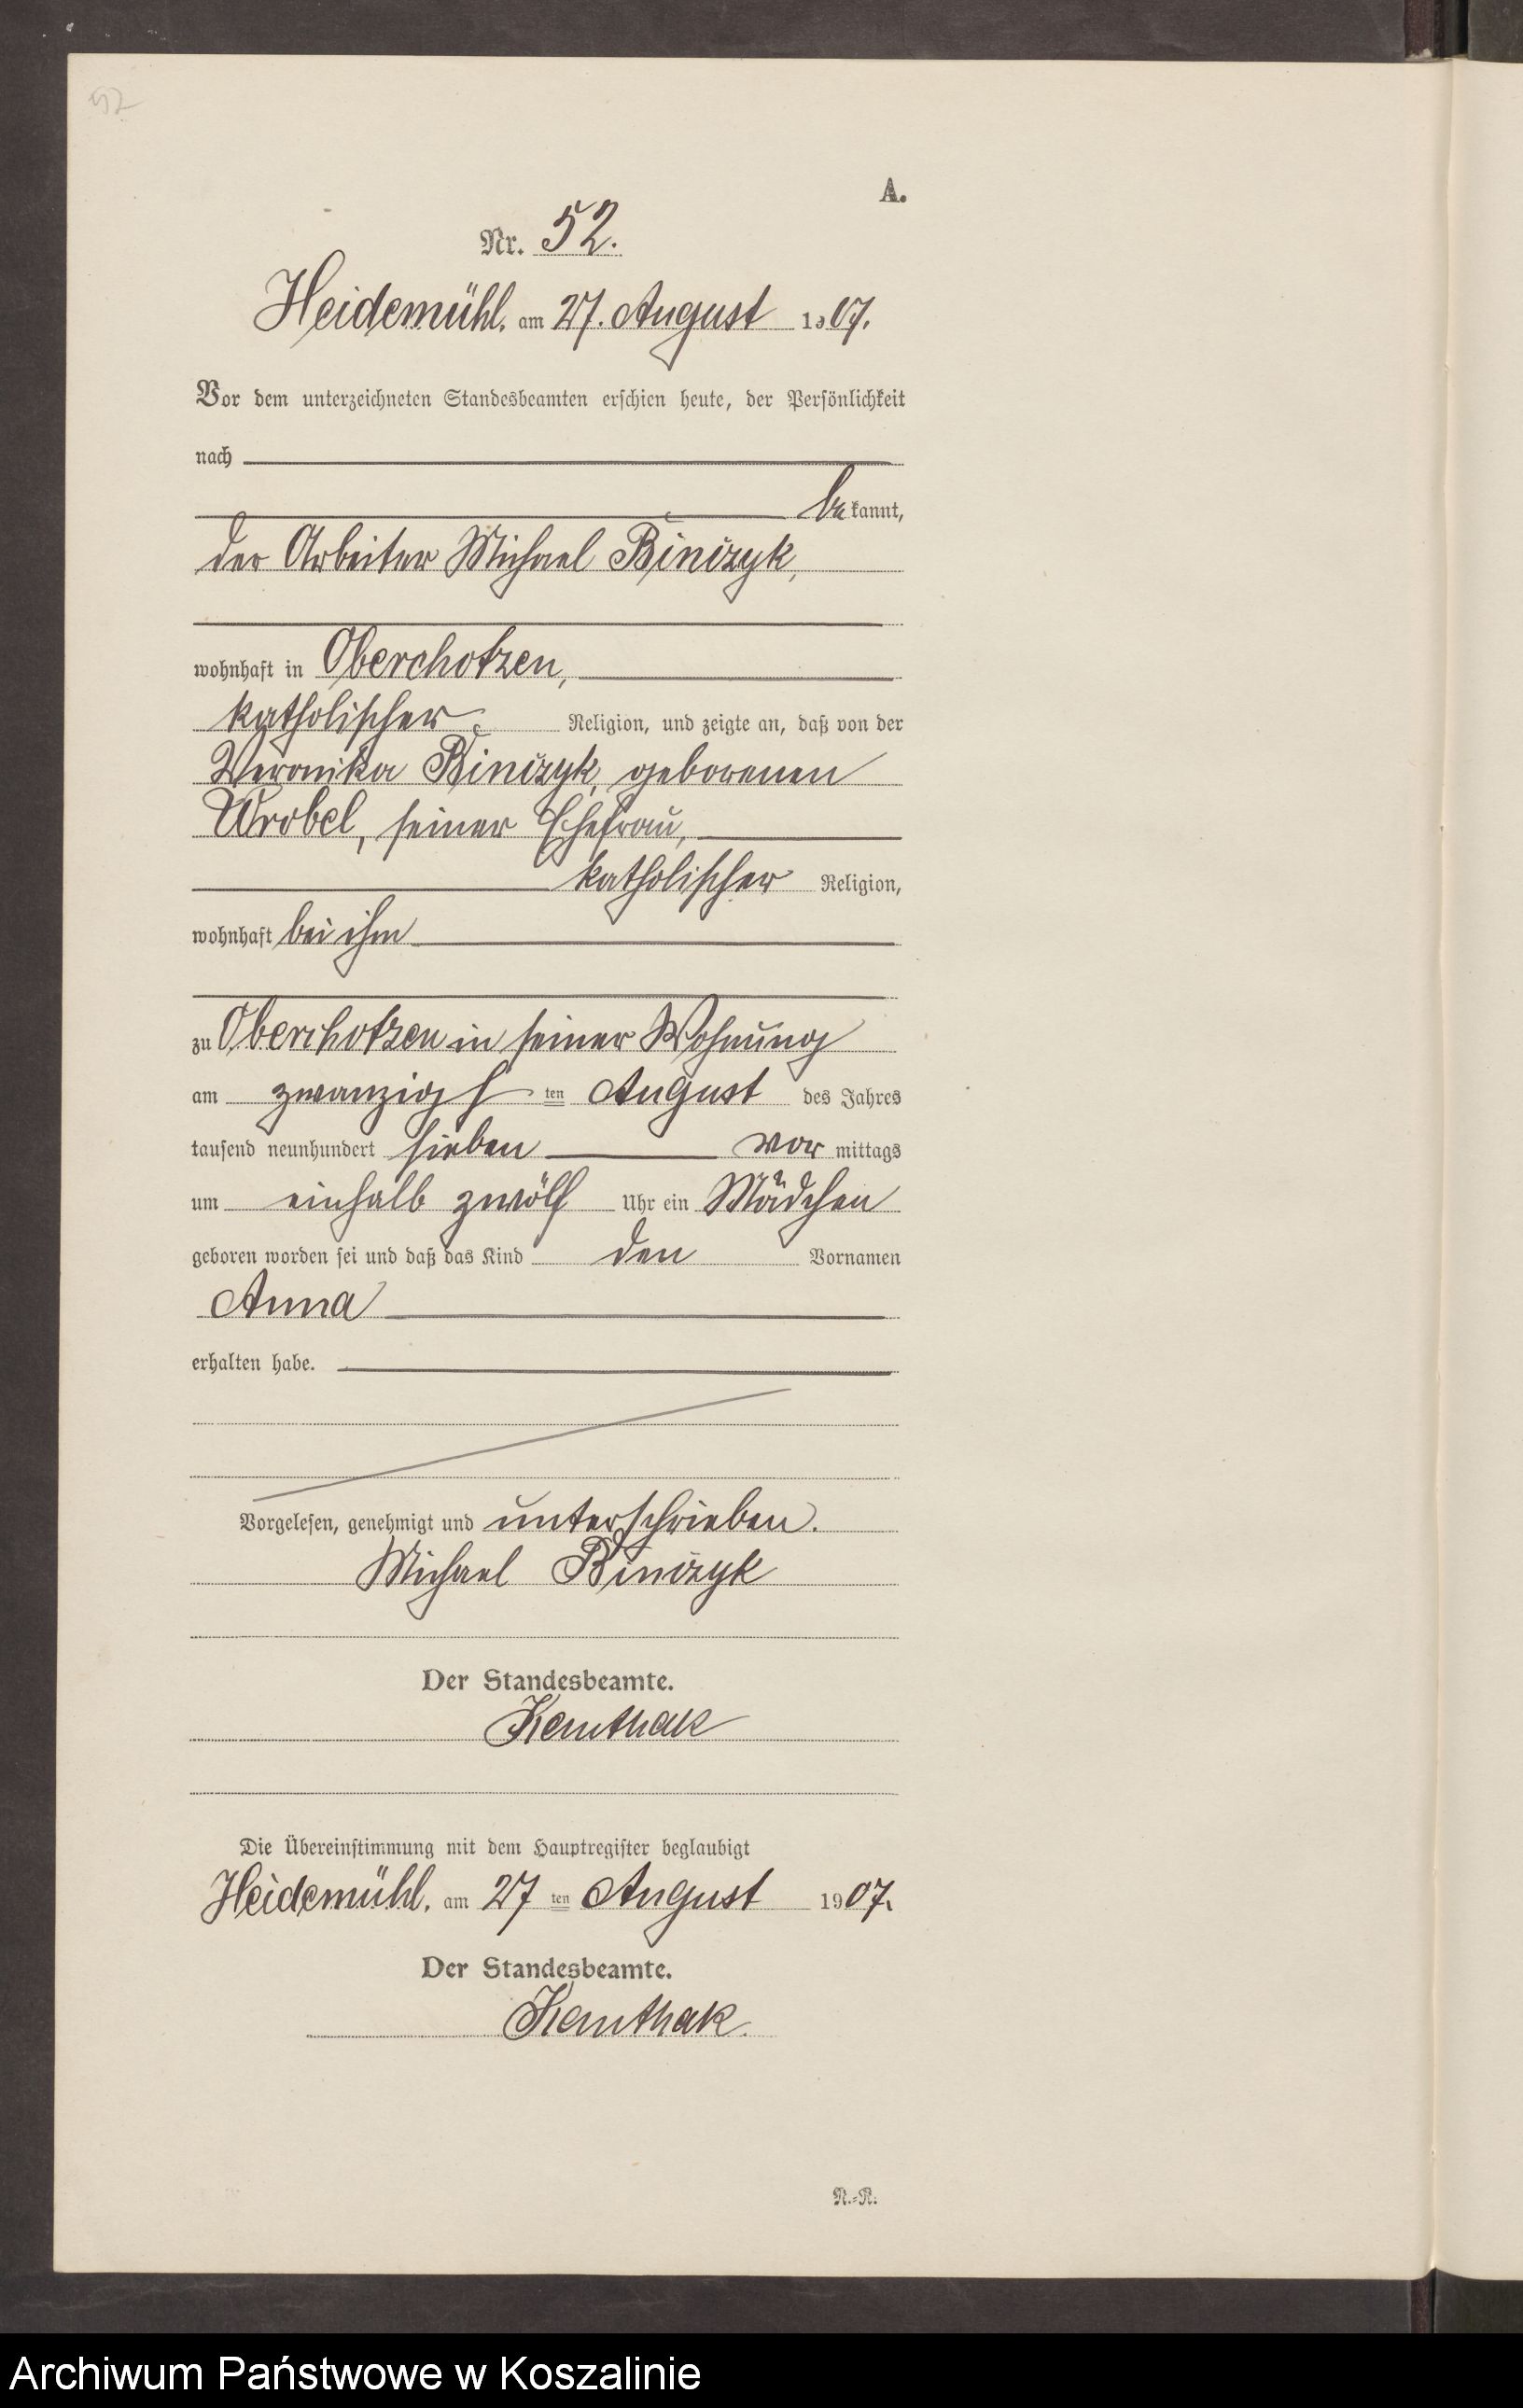 52
A.
Nr. 52.
Heidemühl, am 27. August 1907.
Vor dem unterzeichneten Standesbeamten erschien heute, der Persönlichkeit
nach
bekannt,
der Arbeiter Michael Binczyk,
wohnhaft in Oberchotzen,
katholischer Religion, und zeigte an, daß von der
Veronika Binczyk, geborenen
Wrobel, seiner Ehefrau,
katholischer Religion,
wohnhaft bei ihm
zu Oberchotzen in seiner Wohnung
am zwanzigsten August des Jahres
tausend neunhundert sieben vormittags
um einhalb zwölf Uhr ein Mädchen
geboren worden sei und daß das Kind den Vornamen
Anna
erhalten habe.
Vorgelesen, genehmigt und unterschrieben.
Michael Binczyk
Der Standesbeamte.
Kemthak
Die Übereinstimmung mit dem Hauptregister beglaubigt
Heidemühl, am 27ten August 1907.
Der Standesbeamte.
Kemthak.
N.-R.
Archiwum Państwowe w Koszalinie